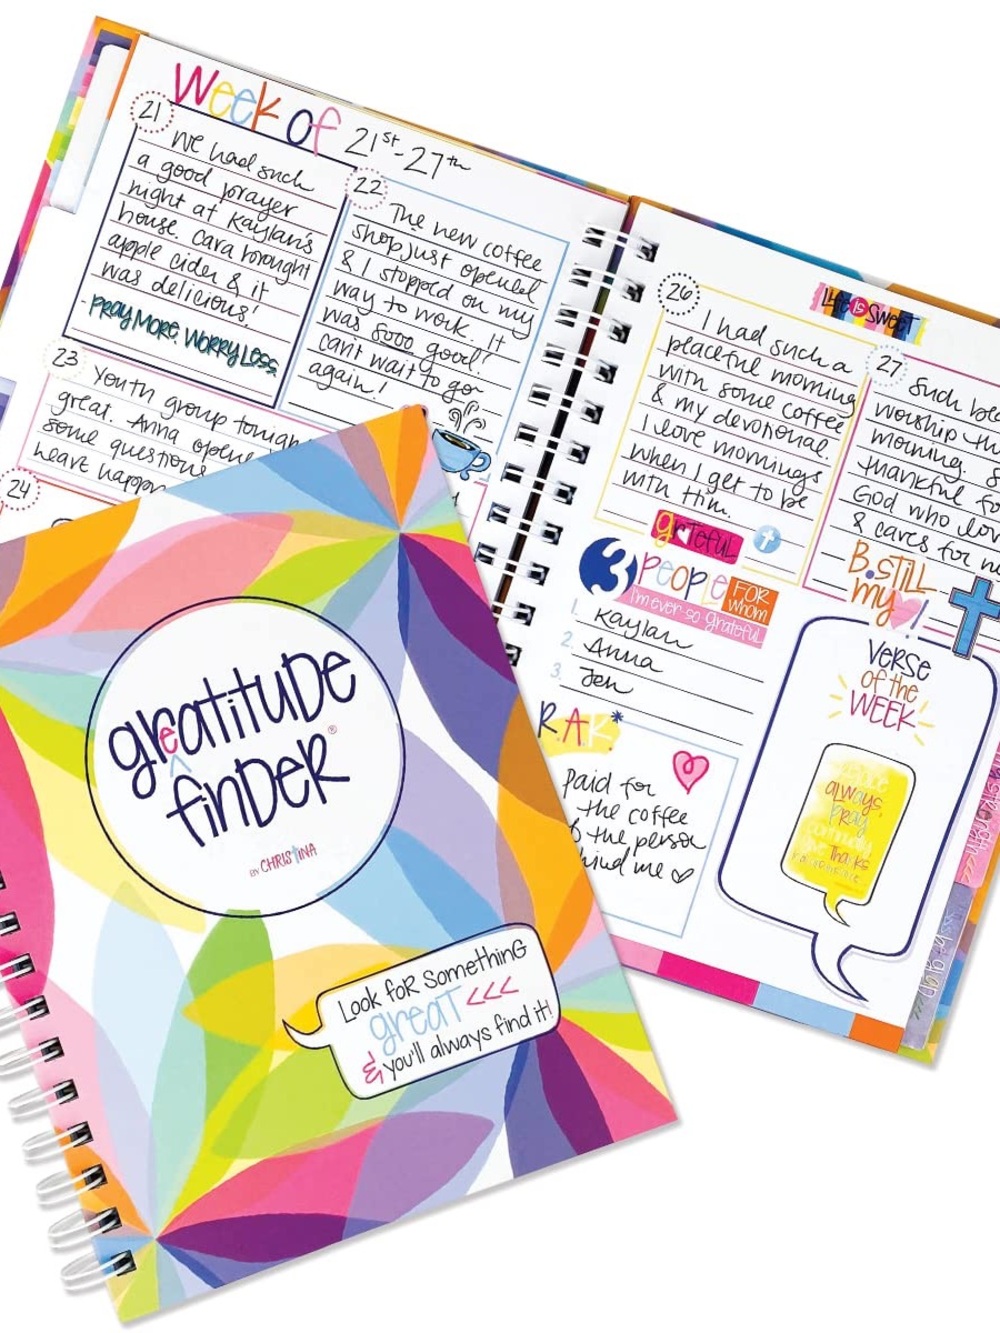 Week of 21st-27th
21
We had such
a good prayer
night at Kaylan's
house. Cara brought
apple cider & it
was delicious!
-Pray More. Worry Less.
22
The new coffee
shop just opened
& I stopped on my
way to work. It
was sooo good!
can't wait to go
again!
23
Youth group tonigh
great. Anna opene
some questions
heart happ
24
26
Life is Sweet
I had such a
peaceful morning
with some coffee
& my devotional.
I love mornings
when I get to be
with Him.
grateful
27
Such be
worship th
morning.
thankful fo
God who lov
& cares for
B.Still
my !
3 People for whom
I'm ever-so grateful
1. Kaylan
2. Anna
3. Jen
R.A.K*
Paid for
the coffee
the person
me
Verse
of the
Week
always
pray
continually
give thanks
gratitude
finder®
by Christina
Look for something
great <<<
& you'll always find it!